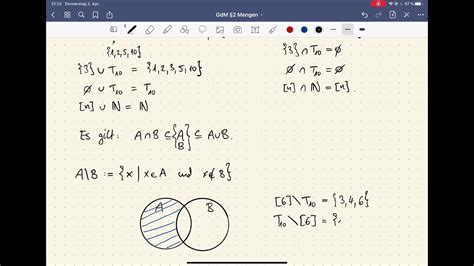 21:33 Donnerstag 2. Apr.
GdM §2 Mengen
{1,2,5,10}
{3} ∪ T₁₀ = {1,2,3,5,10}
∅ ∪ T₁₀ = T₁₀
[n] ∪ ℕ = ℕ
{3} ∩ T₁₀ = ∅
∅ ∩ T₁₀ = ∅
[n] ∩ ℕ = [n].
Es gilt: A∩B ⊆ {A B} ⊆ A∪B.
A\B := {x | x∈A und x∉B}
A B
[6]\T₁₀ = {3,4,6}
T₁₀\[6] = {